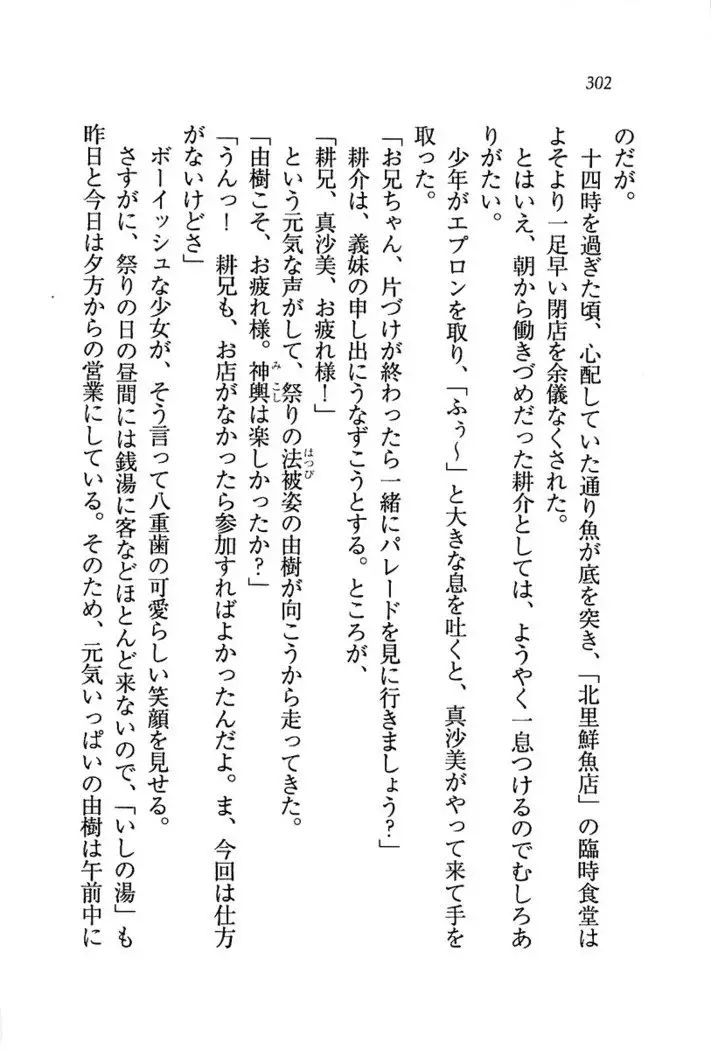 302
のだが。
　十四時を過ぎた頃、心配していた通り魚が底を突き、「北里鮮魚店」の臨時食堂は
よそより一足早い閉店を余儀なくされた。
　とはいえ、朝から働きづめだった耕介としては、ようやく一息つけるのでむしろあ
りがたい。
　少年がエプロンを取り、「ふぅ〜」と大きな息を吐くと、真沙美がやって来て手を
取った。
「お兄ちゃん、片づけが終わったら一緒にパレードを見に行きましょう?」
　耕介は、義妹の申し出にうなずこうとする。ところが、
「耕兄、真沙美、お疲れ様!」
　という元気な声がして、祭りの法被姿の由樹が向こうから走ってきた。
はつぴ
「由樹こそ、お疲れ様。神輿は楽しかったか?」
みこし
「うんっ!　耕兄も、お店がなかったら参加すればよかったんだよ。ま、今回は仕方
がないけどさ」
　ボーイッシュな少女が、そう言って八重歯の可愛らしい笑顔を見せる。
　さすがに、祭りの日の昼間には銭湯に客などほとんど来ないので、「いしの湯」も
昨日と今日は夕方からの営業にしている。そのため、元気いっぱいの由樹は午前中に